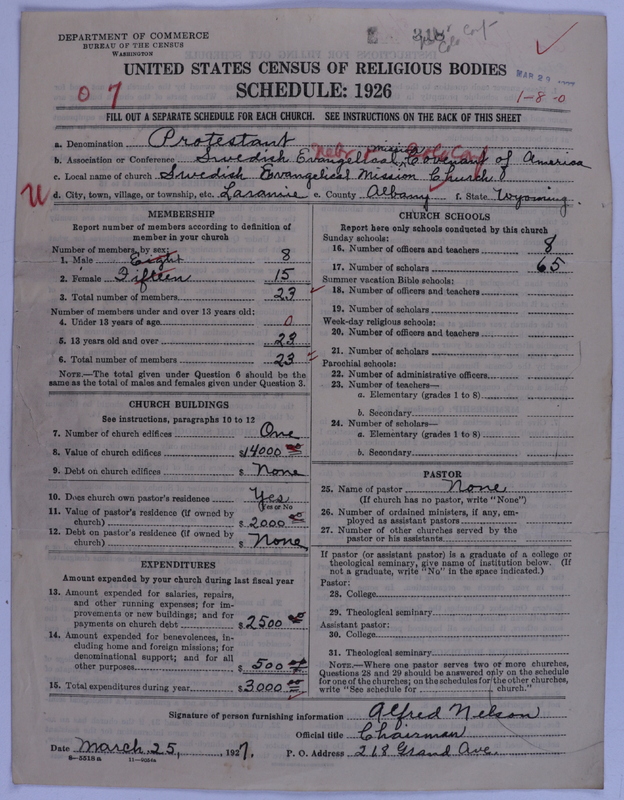 DEPARTMENT OF COMMERCE
BUREAU OF THE CENSUS
WASHINGTON
UNITED STATES CENSUS OF RELIGIOUS BODIES
MAR 29
SCHEDULE: 1926
0 7
1-8-0
FILL OUT A SEPARATE SCHEDULE FOR EACH CHURCH. SEE INSTRUCTIONS ON THE BACK OF THIS SHEET
a. Denomination Protestant
b. Association or Conference Swedish Evangelical Mission Covenant of America
c. Local name of church Swedish Evangelical Mission Church
d. City, town, village, or township, etc. Laramie e. County Albany f. State Wyoming.
MEMBERSHIP
Report number of members according to definition of
member in your church
Number of members, by sex:
1. Male Eight 8
2. Female Fifteen 15
3. Total number of members 23
Number of members under and over 13 years old:
4. Under 13 years of age 0
5. 13 years old and over 23
6. Total number of members 23
NOTE.—The total given under Question 6 should be
same as the total of males and females given under Question 3.
CHURCH BUILDINGS
See instructions, paragraphs 10 to 12
7. Number of church edifices One
8. Value of church edifices $14000 00
9. Debt on church edifices $ None
10. Does church own pastor's residence Yes
(Yes or No
11. Value of pastor's residence (if owned by
church) $ 2000 00
12. Debt on pastor's residence (if owned by
church) $ None
EXPENDITURES
Amount expended by your church during last fiscal year
13. Amount expended for salaries, repairs,
and other running expenses; for im-
provements or new buildings; and for
payments on church debt $2500 00
14. Amount expended for benevolences, in-
cluding home and foreign missions; for
denominational support; and for all
other purposes $ 500 00
15. Total expenditures during year $3000 00
CHURCH SCHOOLS
Report here only schools conducted by this church
Sunday schools:
16. Number of officers and teachers 8
17. Number of scholars 65
Summer vacation Bible schools:
18. Number of officers and teachers
19. Number of scholars
Week-day religious schools:
20. Number of officers and teachers
21. Number of scholars
Parochial schools:
22. Number of administrative officers
23. Number of teachers—
a. Elementary (grades 1 to 8)
b. Secondary
24. Number of scholars—
a. Elementary (grades 1 to 8)
b. Secondary
PASTOR
25. Name of pastor None
(If church has no pastor, write "None")
26. Number of ordained ministers, if any, em-
ployed as assistant pastors
27. Number of other churches served by the
pastor or his assistants
If pastor (or assistant pastor) is a graduate of a college or
theological seminary, give name of institution below. (If
not a graduate, write "No" in the space indicated.)
Pastor:
28. College
29. Theological seminary
Assistant pastor:
30. College
31. Theological seminary
NOTE.—Where one pastor serves two or more churches,
Questions 28 and 29 should be answered only on the schedule
for one of the churches; on the schedules for the other churches,
write "See schedule for church."
Signature of person furnishing information Alfred Nelson
Official title Chairman
Date March 25, 1927. P. O. Address 218 Grand Ave.
8-5518a